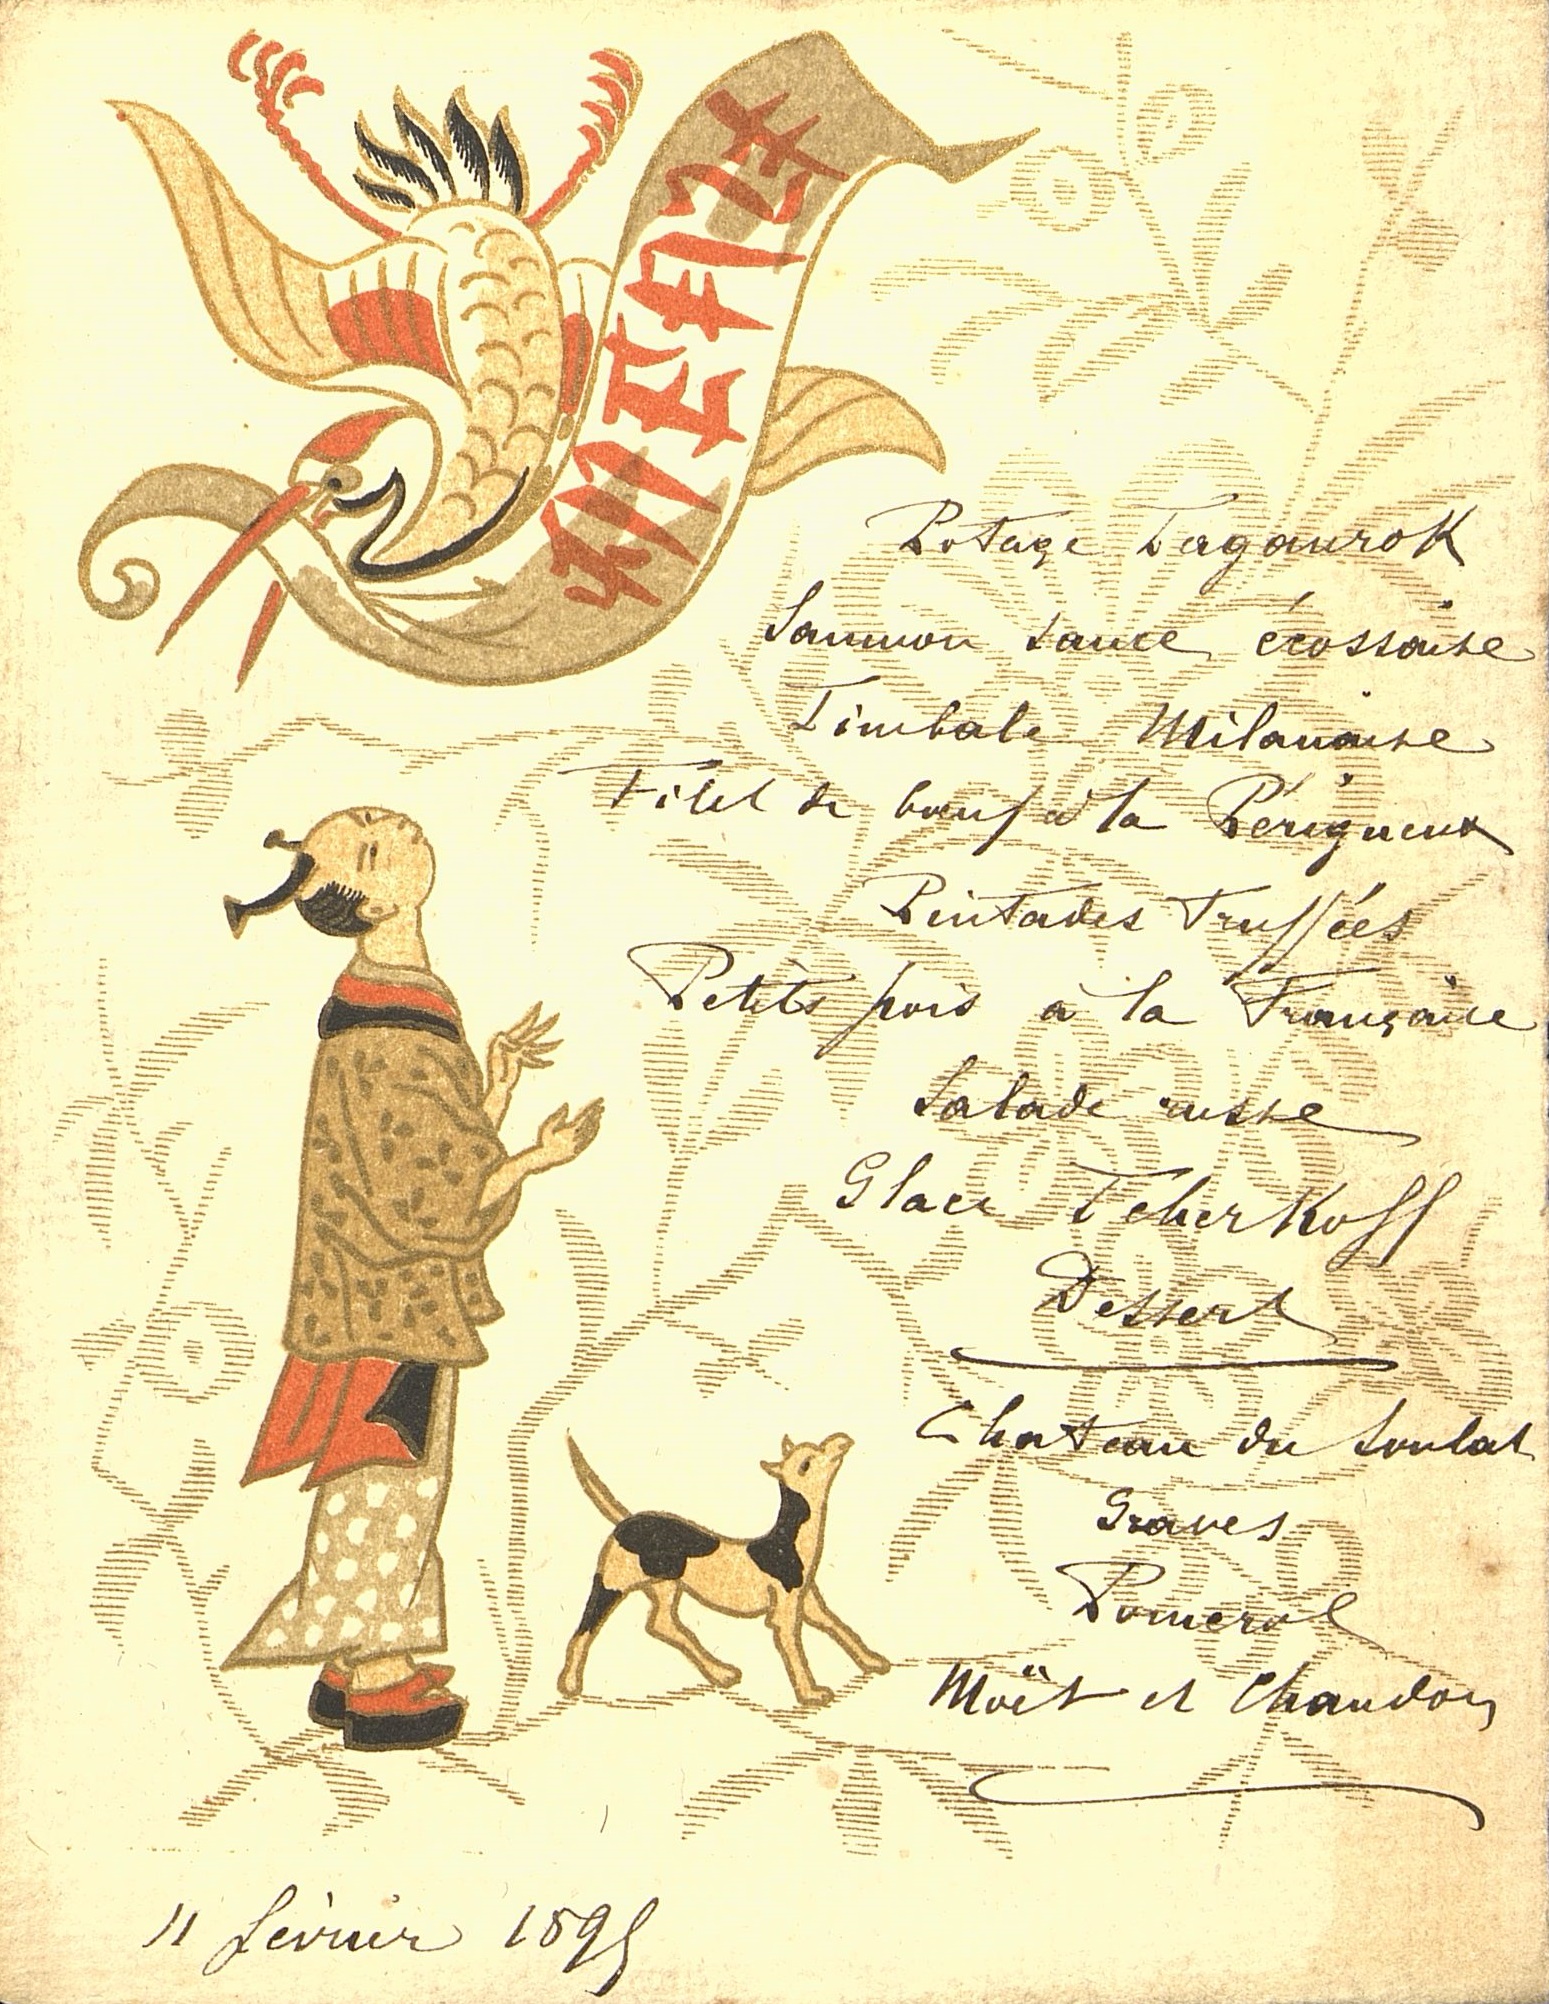 Potage Taganrok
Saumon sauce écossaise
Timbale Milanaise
Filet de bœuf à la Périgueux
Pintades Truffées
Petits pois à la Française
Salade russe
Glace Tcherkoff
Dessert
Chateau du Soulat
Graves
Pomerol
Moët et Chandon
11 février 1895